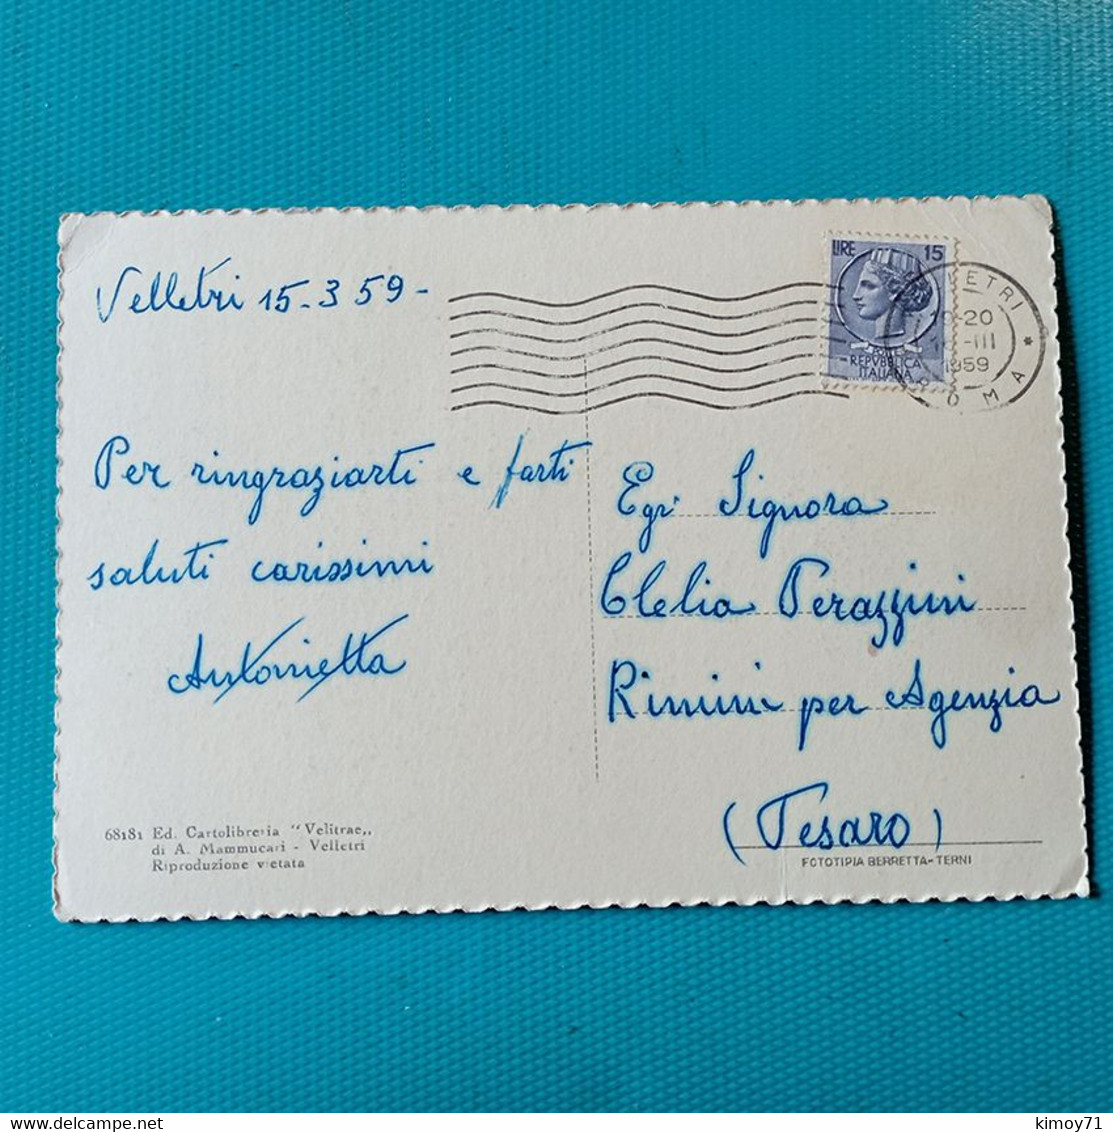 Velletri 15-3 59-
LIRE 15
REPVBBLICA
ITALIANA
19-20
-III
1959
ROMA
Per ringraziarti e farti
saluti carissimi
Antonietta
Egr. Signora
Clelia Perazzini
Rimini per Agenzia
(Pesaro)
68181 Ed. Cartolibreria "Velitrae,,
di A. Mammucari - Velletri
Riproduzione vietata
FOTOTIPIA BERRETTA-TERNI
delcampe.net
kimoy71